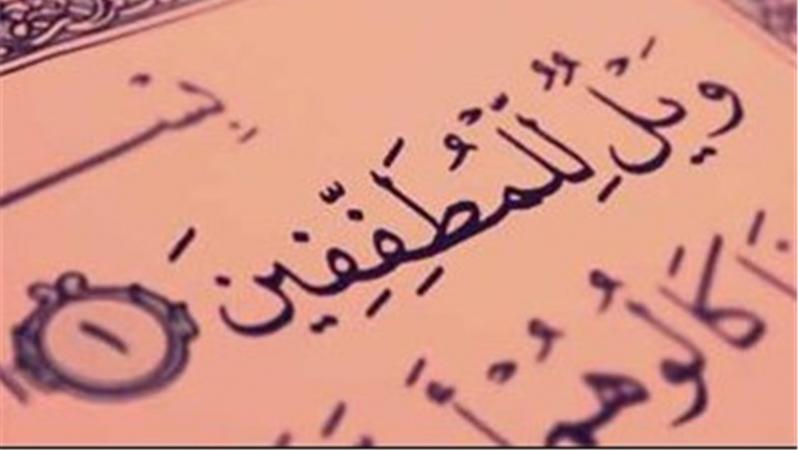 بِسْــ
وَيْلٌ لِّلْمُطَفِّفِينَ ١
كَالُوهُمْ أَو